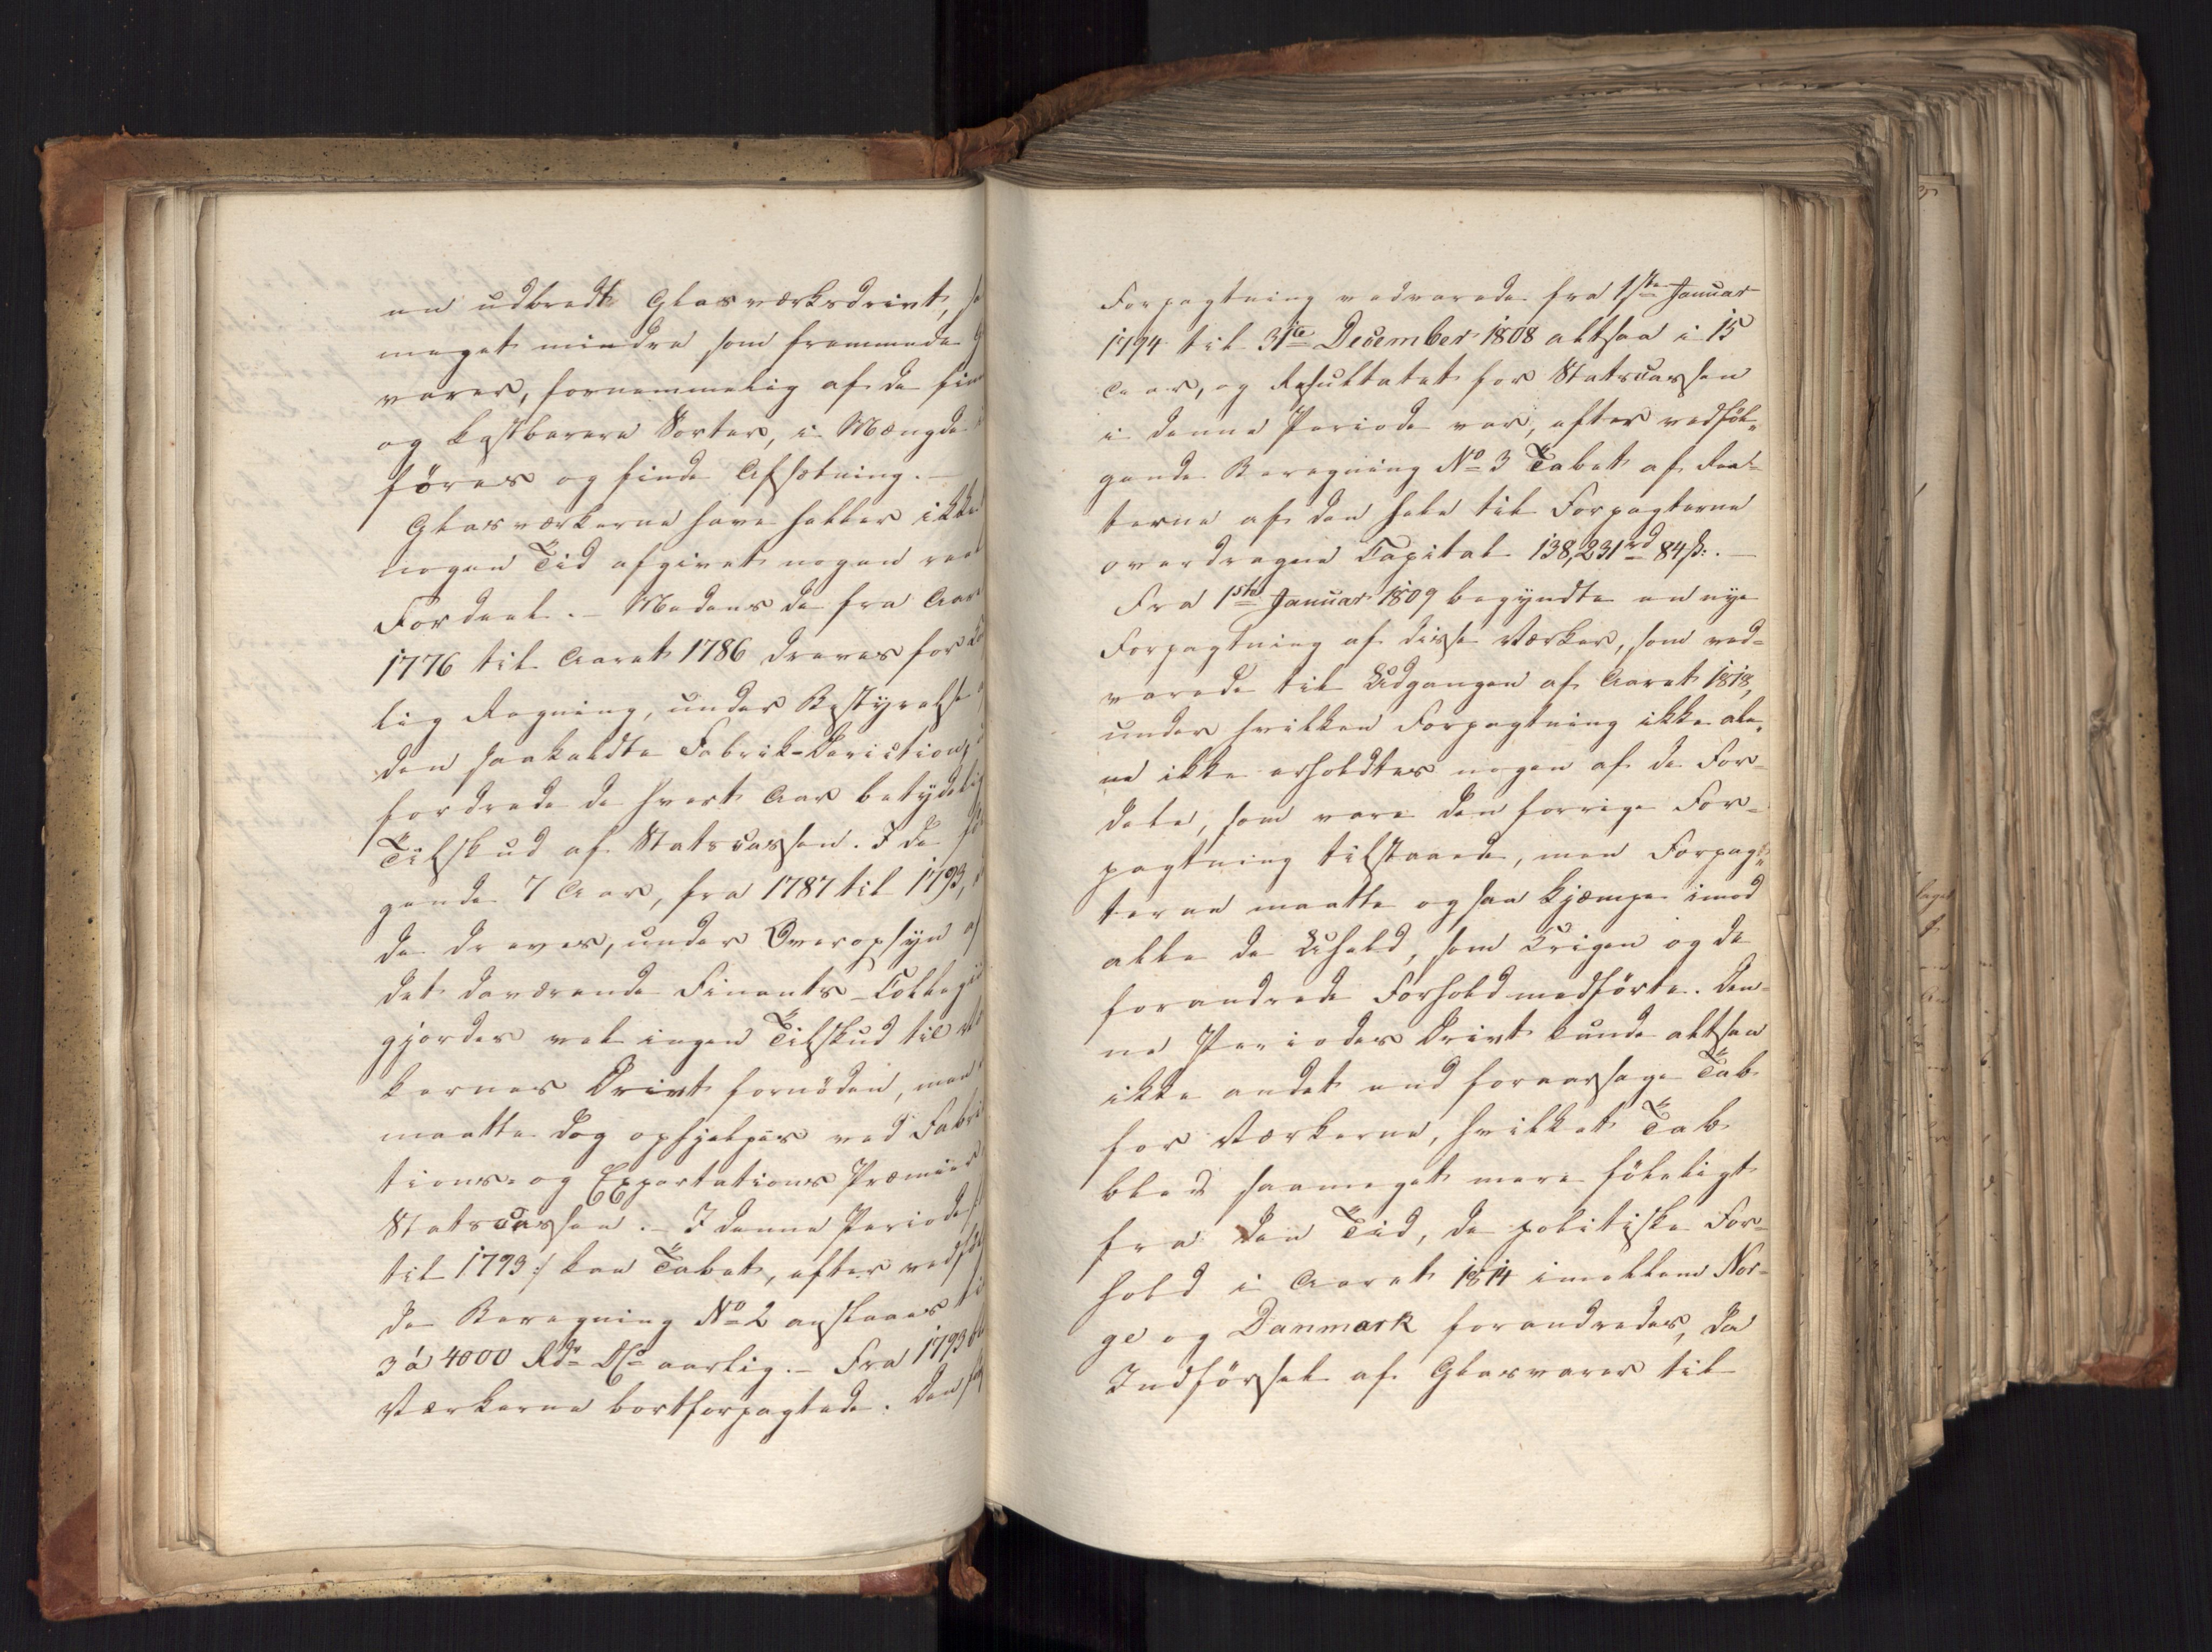 en udbredt Glasværksdrivt, 
meget mindre som fremmede 
varer, fornemmelig af de fine
og kostbarere Sorter, i Mængde
föres og finde Afsætning. –
Glasværkerne have heller ikke
nogen Tid afgivet nogen reel
Fordeel. – Medens de fra Aar
1776 til Aaret 1786 dreves for
lig Regning, under Bestyrelse
den saakaldte Fabrik-Direction,
fordrede de hvert Aar betydelig
Tilskud af Statscassen. I de föl
gende 7 Aar, fra 1787 til 1793,
de dreves, under Overopsyn af
det daværende Finants-Collegii
gjordes vel ingen Tilskud til Vær
kernes Drivt fornöden, men
maatte dog ophjelpes ved Fabri
tions- og Exportations Præmier
Statscassen. – I denne Periode
til 1793 :/ kan Tabet, efter vedföl
de Beregning No 2 anslaaes til
3 à 4000 Rdr D.C. aarlig. – Fra 1793 ble
Værkerne bortforpagtede. Den
Forpagtning vedvarede fra 1ste Januar
1794 til 31te December 1808 altsaa i 15
Aar, og Resultatet for Statscassen
i denne Periode var, efter vedföl„
gende Beregning No 3 Tabet af Ren-
terne af den hele til Forpagterne
overdragne Capital 138,231 rd 84 ß. –
Fra 1ste Januar 1809 begyndte en nye
Forpagtning af disse Værker, som ved-
varede til Udgangen af Aaret 1818,
under hvilken Forpagtning ikke ale„
ne ikke erholdtes nogen af de For-
dele, som vare den forrige For-
pagtning tilstaaede, men Forpag„
terne maatte og saa kjæmpe imod
alle de Uheld, som Krigen og de
forandrede Forhold medförte. Den-
ne Periodes Drivt kunde altsaa
ikke andet end foraarsage Tab
for Værkerne, hvilket Tab
blev saameget mere föleligt
fra den Tid, de politiske For-
hold i Aaret 1814 imellem Nor-
ge og Danmark forandredes, da
Indförsel af Glasvarer til